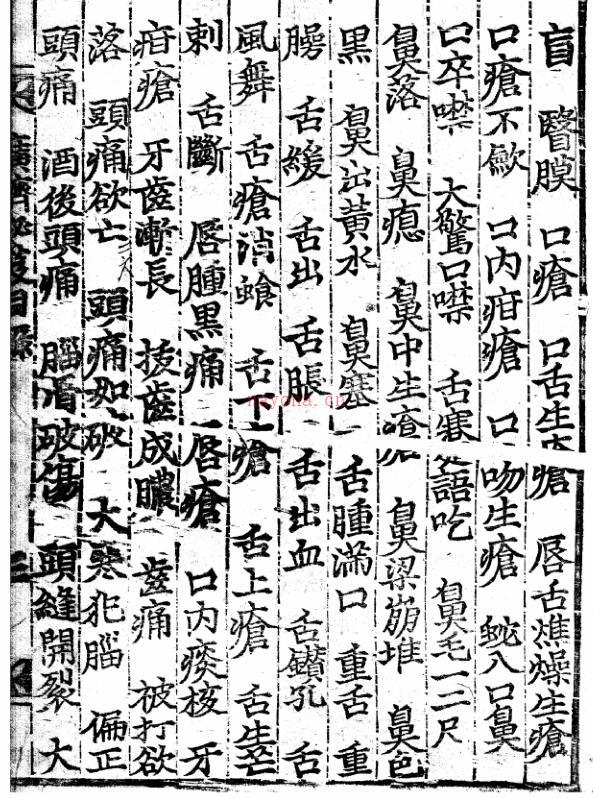 盲 瞖膜 口瘡 口舌生瘡 唇舌燋燥生瘡
口瘡不歛 口内疳瘡 口吻生瘡 蛇入口鼻
口卒噤 大驚口噤 舌寒語吃 鼻毛一二尺
鼻落 鼻瘜 鼻中生瘡 鼻梁崩堆 鼻色
黒 鼻出黄水 鼻塞 舌腫滿口 重舌 重
腭 舌緩 舌出 舌脹 舌出血 舌鑚孔 舌
風舞 舌瘡消蝕 舌下瘡 舌上瘡 舌生芒
刺 舌斷 唇腫黒痛 唇瘡 口内痰核 牙
疳瘡 牙齒漸長 拔齒成膿 齒痛 被打欲
落 頭痛欲亡 頭痛如破 大寒犯腦 偏正
頭痛 酒後頭痛 腦盾破傷 頭縫開裂 大
廣濟秘笈目録 三